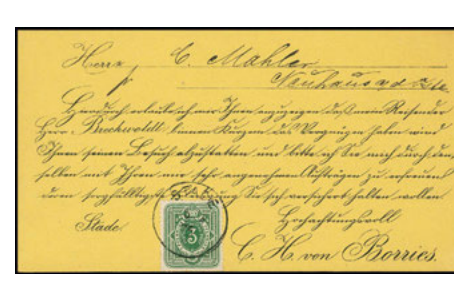 Herrn C. Mahler
Neuhaus a/d Oste
Hierdurch erlaube ich mir Ihnen anzuzeigen daß mein Reisender
Herr Brockwoldt binnen Kurzem das Vergnügen haben wird
Ihnen seinen Besuch abzustatten und bitte ich Sie mich durch den¬
selben mit Ihren mir sehr angenehmen Aufträgen zu erfreuen
deren sorgfältigste Sie sich versichert halten wollen.
Stade. Hochachtungsvoll
C. H. von Borries.
STADE
3